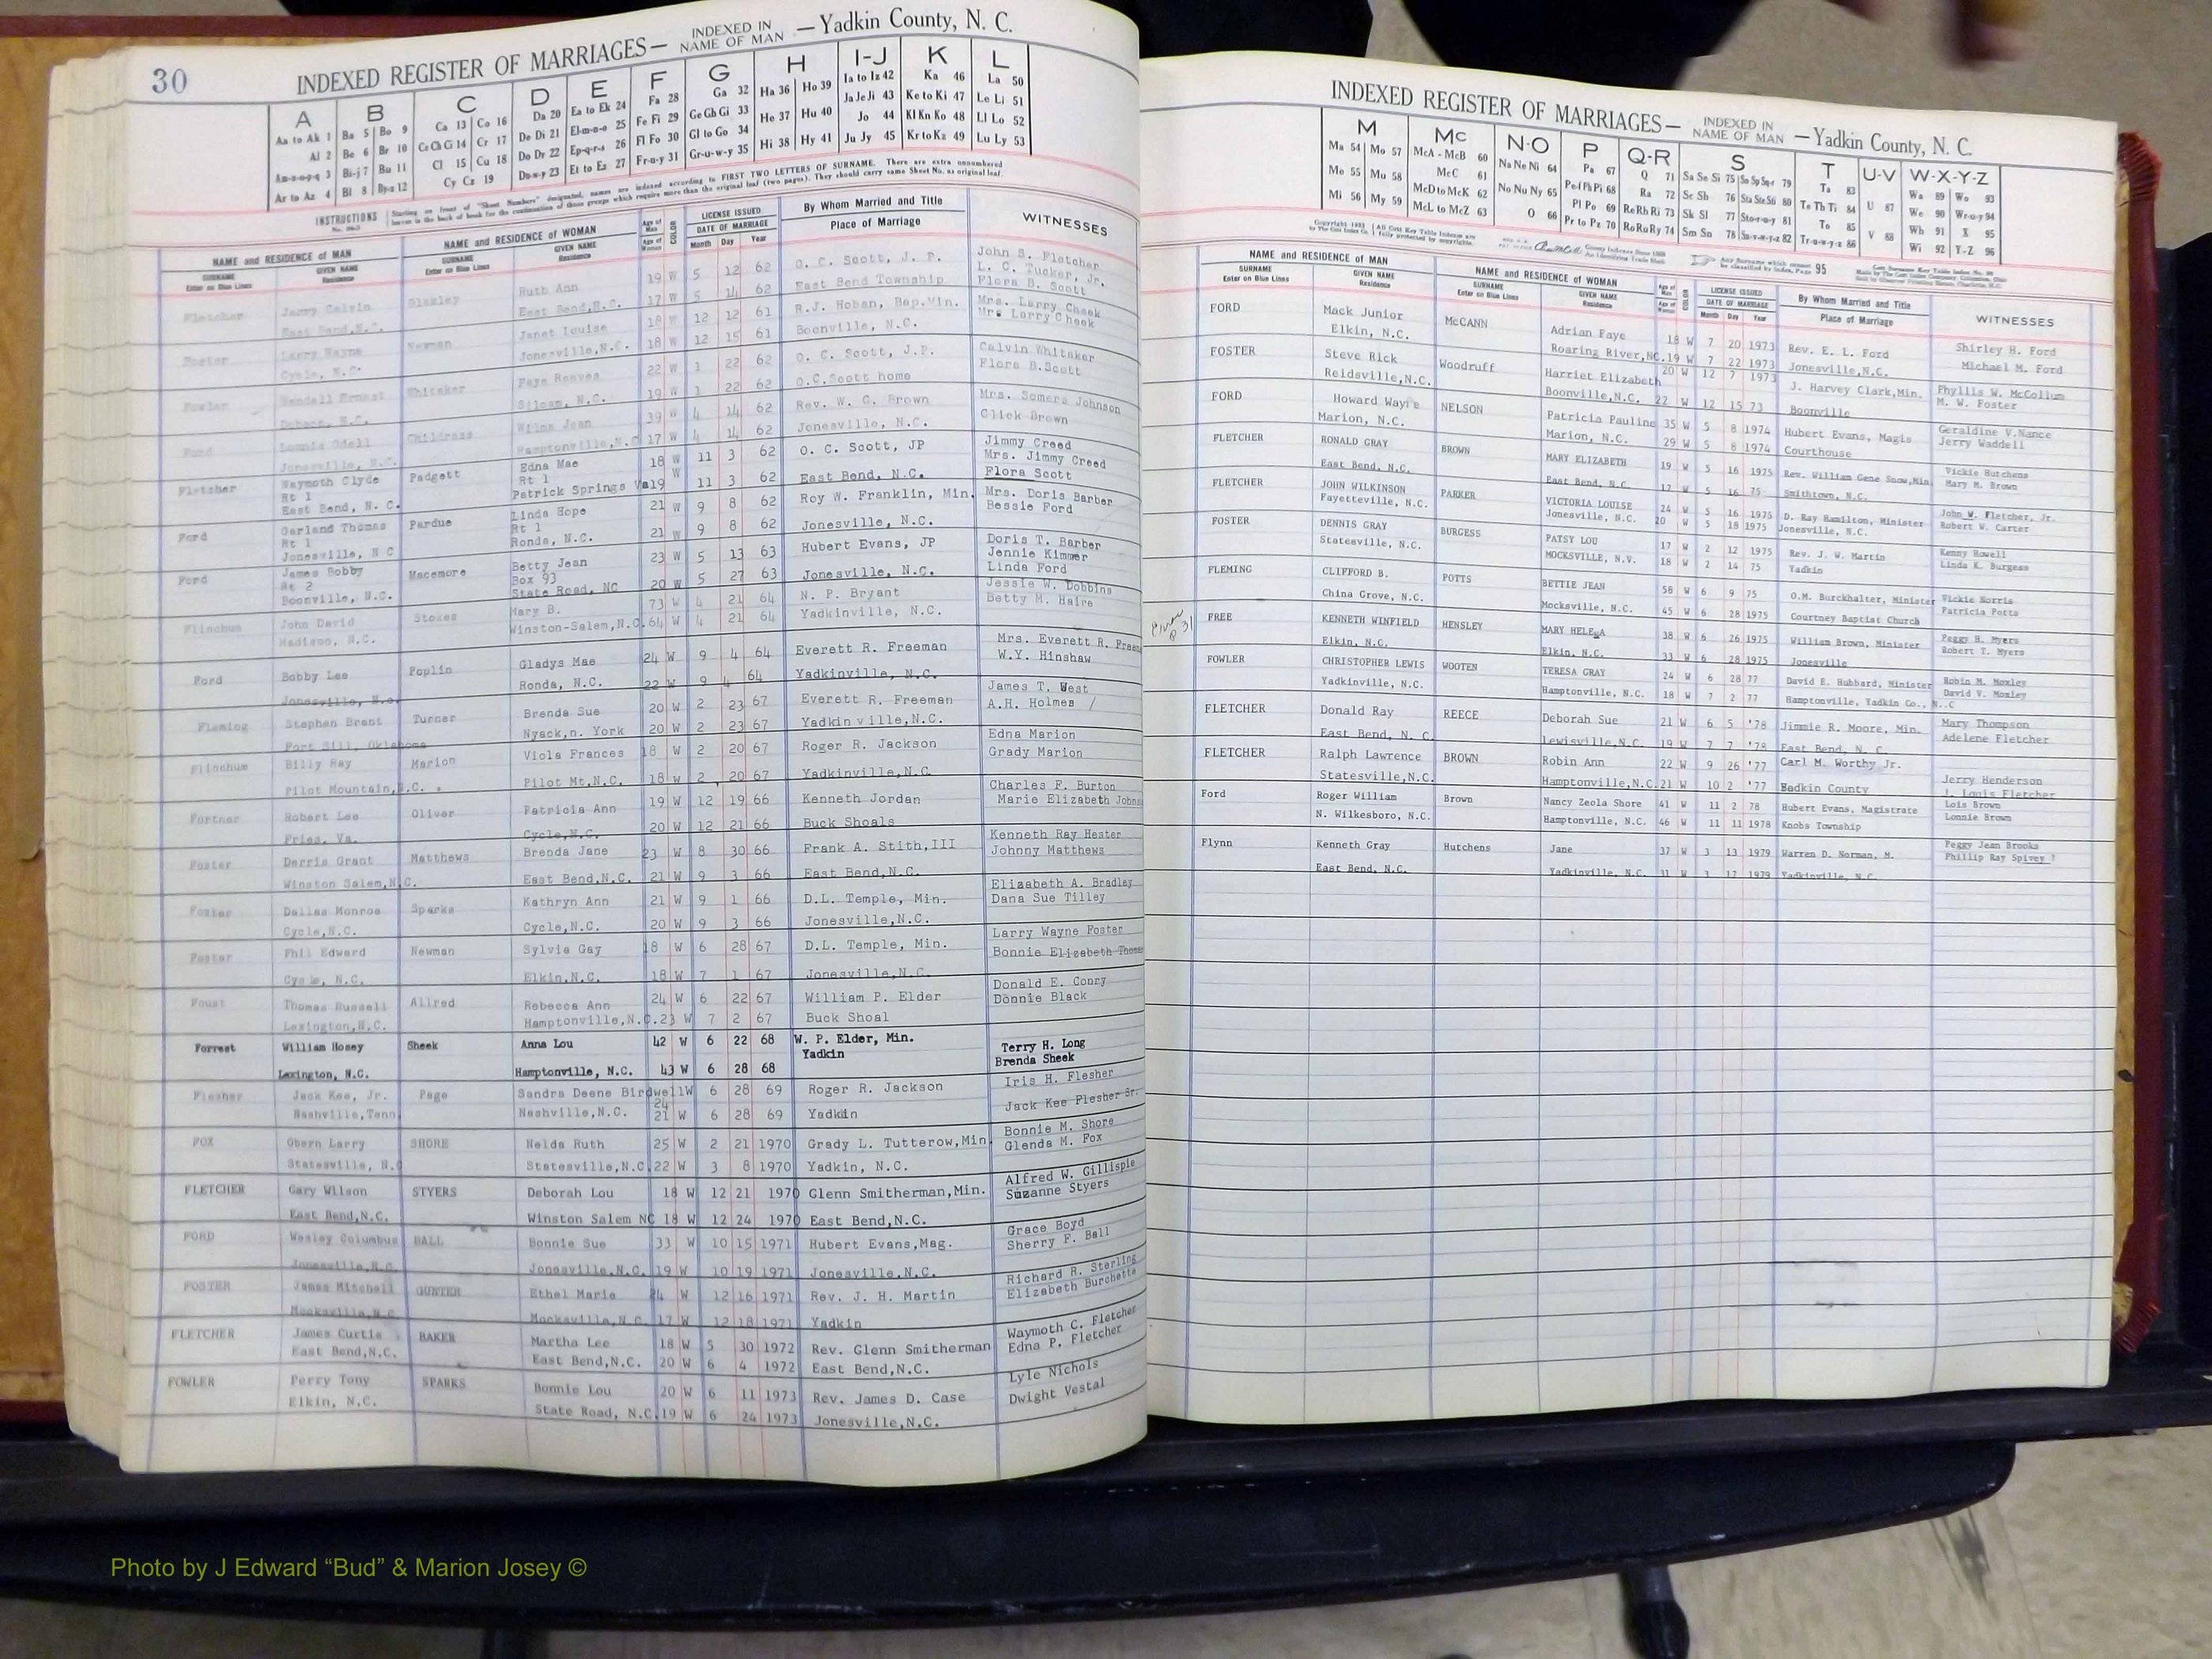 30
INDEXED REGISTER OF MARRIAGES— INDEXED IN NAME OF MAN — Yadkin County, N. C.
A B C D E F G H I-J K L
Aa to Ak 1 Ba 5 Bo 9 Ca 13 Co 16 Da 20 Ea to Ek 24 Fa 28 Ga 32 Ha 36 Ho 39 Ia to Iz 42 Ka 46 La 50
Al 2 Be 6 Br 10 Ce Ch Ci 14 Cr 17 De Di 21 El-m-n-o 25 Fe Fi 29 Ge Gh Gi 33 He 37 Hu 40 Ja Je Ji 43 Ke to Ki 47 Le Li 51
Am-n-o-p-q 3 Bi-j 7 Bu 11 Cl 15 Cu 18 Do Dr 22 Ep-q-r-s 26 Fl Fo 30 Gl to Go 34 Hi 38 Hy 41 Jo 44 Kl Kn Ko 48 Ll Lo 52
Ar to Az 4 Bl 8 By-z 12 Cy Cz 19 Du-w-y 23 Et to Ez 27 Fr-u-y 31 Gr-u-w-y 35 Ju Jy 45 Kr to Kz 49 Lu Ly 53
INSTRUCTIONS Starting on front of "Sheet Numbers" designated, names are indexed according to FIRST TWO LETTERS OF SURNAME. There are extra unnumbered
leaves in the back of book for the continuation of those groups which require more than the original leaf (two pages). They should carry same Sheet No. as original leaf.
NAME and RESIDENCE of MAN NAME and RESIDENCE of WOMAN Age of Man COLOR LICENSE ISSUED By Whom Married and Title WITNESSES
SURNAME Enter on Blue Lines GIVEN NAME Residence SURNAME Enter on Blue Lines GIVEN NAME Residence Age of Woman DATE OF MARRIAGE Month Day Year Place of Marriage
Fletcher Jerry Calvin Blakley Ruth Ann 19 W 5 12 62 O. C. Scott, J. P. John S. Fletcher
L. C. Tucker, Jr.
East Bend,N.C. East Bend,N.C. 17 W 5 14 62 East Bend Township Flora B. Scott
Foster Larry Wayne Newman Janet Louise 18 W 12 12 61 R.J. Hoban, Bap.Min. Mrs. Larry Cheek
Cycle, N.C. Jonesville,N.C. 18 W 12 15 61 Boonville, N.C. Mrs Larry Cheek
Fowler Wendell Ernest Whitaker Faye Reeves 22 W 1 22 62 O. C. Scott, J.P. Calvin Whitaker
Dobson, N.C. Siloam, N.C. 19 W 1 22 62 O.C.Scott home Flora B.Scott
Ford Lonnie Odell Childress Wilma Jean 39 W 4 14 62 Rev. W. G. Brown Mrs. Somers Johnson
Jonesville, N.C. Hamptonville,N.C 17 W 4 14 62 Jonesville, N.C. Click Brown
Fletcher Waymoth Clyde Padgett Edna Mae 18 W 11 3 62 O. C. Scott, JP Jimmy Creed
Rt 1 Rt 1 W Mrs. Jimmy Creed
East Bend, N. C. Patrick Springs Va19 11 3 62 East Bend, N.C. Flora Scott
Ford Garland Thomas Pardue Linda Hope 21 W 9 8 62 Roy W. Franklin, Min. Mrs. Doris Barber
Rt 1 Rt 1 Bessie Ford
Jonesville, N C Ronda, N.C. 21 W 9 8 62 Jonesville, N.C.
Ford James Bobby Macemore Betty Jean 23 W 5 13 63 Hubert Evans, JP Doris T. Barber
Rt 2 Box 93 Jennie Kimmer
Boonville, N.C. State Road, NC 20 W 5 27 63 Jonesville, N.C. Linda Ford
Flinchum John David Stokes Mary B. 73 W 4 21 64 N. P. Bryant Jessie W. Dobbins
Madison, N.C. Winston-Salem,N.C. 64 W 4 21 64 Yadkinville, N.C. Betty M. Haire
Ford Bobby Lee Poplin Gladys Mae 24 W 9 4 64 Everett R. Freeman Mrs. Everett R. Freem
Jonesville, N.C. Ronda, N.C. 22 W 9 4 64 Yadkinville, N.C. W.Y. Hinshaw
Fleming Stephen Brent Turner Brenda Sue 20 W 2 23 67 Everett R. Freeman James T. West
Fort Sill, Oklahoma Nyack,n. York 20 W 2 23 67 Yadkinville,N.C. A.H. Holmes /
Flinchum Billy Ray Marion Viola Frances 18 W 2 20 67 Roger R. Jackson Edna Marion
Pilot Mountain,N.C. Pilot Mt,N.C. 18 W 2 20 67 Yadkinville,N.C. Grady Marion
Fortner Robert Lee Oliver Patricia Ann 19 W 12 19 66 Kenneth Jordan Charles F. Burton
Fries, Va. Cycle,N.C. 20 W 12 21 66 Buck Shoals Marie Elizabeth Johns
Foster Derris Grant Matthews Brenda Jane 23 W 8 30 66 Frank A. Stith,III Kenneth Ray Hester
Winston Salem,N.C. East Bend,N.C. 21 W 9 3 66 East Bend,N.C. Johnny Matthews
Foster Dallas Monroe Sparks Kathryn Ann 21 W 9 1 66 D.L. Temple, Min. Elizabeth A. Bradley
Cycle,N.C. Cycle,N.C. 20 W 9 3 66 Jonesville,N.C. Dana Sue Tilley
Foster Phil Edward Newman Sylvia Gay 18 W 6 28 67 D.L. Temple, Min. Larry Wayne Foster
Cycle, N.C. Elkin,N.C. 18 W 7 1 67 Jonesville,N.C. Bonnie Elizabeth Thomas
Foust Thomas Russell Allred Rebecca Ann 24 W 6 22 67 William P. Elder Donald E. Conry
Lexington,N.C. Hamptonville,N.C.23 W 7 2 67 Buck Shoal Donnie Black
Forrest William Hosey Sheek Anna Lou 42 W 6 22 68 W. P. Elder, Min. Terry H. Long
Lexington, N.C. Hamptonville, N.C. 43 W 6 28 68 Yadkin Brenda Sheek
Flesher Jack Kee, Jr. Page Sandra Deene Birdwell 24 W 6 28 69 Roger R. Jackson Iris H. Flesher
Nashville,Tenn Nashville,N.C. 21 W 6 28 69 Yadkin Jack Kee Flesher Sr.
FOX Obern Larry SHORE Nelda Ruth 25 W 2 21 1970 Grady L. Tutterow,Min Bonnie M. Shore
Statesville, N.C Statesville,N.C.22 W 3 8 1970 Yadkin, N.C. Glenda M. Fox
FLETCHER Gary Wilson STYERS Deborah Lou 18 W 12 21 1970 Glenn Smitherman,Min. Alfred W. Gillispie
East Bend,N.C. Winston Salem NC 18 W 12 24 1970 East Bend,N.C. Suzanne Styers
FORD Wesley Columbus BALL Bonnie Sue 33 W 10 15 1971 Hubert Evans,Mag. Grace Boyd
Jonesville,N.C. Jonesville,N.C. 19 W 10 19 1971 Jonesville,N.C. Sherry F. Ball
FOSTER James Mitchell GUNTER Ethel Marie 24 W 12 16 1971 Rev. J. H. Martin Richard R. Sterling
Mocksville,N.C. Mocksville,N.C. 17 W 12 18 1971 Yadkin Elizabeth Burchette
FLETCHER James Curtis BAKER Martha Lee 18 W 5 30 1972 Rev. Glenn Smitherman Waymoth C. Fletcher
East Bend,N.C. East Bend,N.C. 20 W 6 4 1972 East Bend,N.C. Edna P. Fletcher
FOWLER Perry Tony SPARKS Bonnie Lou 20 W 6 11 1973 Rev. James D. Case Lyle Nichols
Elkin, N.C. State Road, N.C.19 W 6 24 1973 Jonesville,N.C. Dwight Vestal
INDEXED REGISTER OF MARRIAGES— INDEXED IN NAME OF MAN — Yadkin County, N. C.
M Mc N-O P Q-R S T U-V W-X-Y-Z
Ma 54 Mo 57 McA - McB 60 Na Ne Ni 64 Pa 67 Q 71 Sa Se Si 75 Sn Sp Sq-r 79 Ta 83 U 87 Wa 89 Wo 93
Me 55 Mu 58 McC 61 No Nu Ny 65 Pe-f Ph Pi 68 Ra 72 Sc Sh 76 Sta Ste Sti 80 Te Th Ti 84 V 88 We 90 Wr-u-y 94
Mi 56 My 59 McD to McK 62 O 66 Pl Po 69 Re Rh Ri 73 Sk Sl 77 Sto-r-u-y 81 To 85 Wh 91 X 95
McL to McZ 63 Pr to Pz 70 Ro Ru Ry 74 Sm Sn 78 Su-v-w-y-z 82 Tr-u-w-y-z 86 Wi 92 Y-Z 96
NAME and RESIDENCE of MAN NAME and RESIDENCE of WOMAN Age of Man COLOR LICENSE ISSUED By Whom Married and Title WITNESSES
SURNAME Enter on Blue Lines GIVEN NAME Residence SURNAME Enter on Blue Lines GIVEN NAME Residence Age of Woman DATE OF MARRIAGE Month Day Year Place of Marriage
FORD Mack Junior McCANN Adrian Faye 18 W 7 20 1973 Rev. E. L. Ford Shirley H. Ford
Elkin, N.C. Roaring River,NC.19 W 7 22 1973 Jonesville,N.C. Michael M. Ford
FOSTER Steve Rick Woodruff Harriet Elizabeth 20 W 12 7 1973 J. Harvey Clark,Min. Phyllis W. McCollum
Reidsville,N.C. Boonville,N.C. 22 W 12 15 73 Boonville M. W. Foster
FORD Howard Wayne NELSON Patricia Pauline 35 W 5 8 1974 Hubert Evans, Magis Geraldine V.Nance
Marion, N.C. Marion, N.C. 29 W 5 8 1974 Courthouse Jerry Waddell
FLETCHER RONALD GRAY BROWN MARY ELIZABETH 19 W 5 16 1975 Rev. William Gene Snow,Min. Vickie Hutchens
East Bend, N.C. East Bend, N.C. 17 W 5 16 75 Smithtown, N.C. Mary M. Brown
FLETCHER JOHN WILKINSON PARKER VICTORIA LOUISE 24 W 5 16 1975 D. Ray Hamilton, Minister John W. Fletcher, Jr.
Fayetteville, N.C. Jonesville, N.C. 20 W 5 18 1975 Jonesville, N.C. Robert W. Carter
FOSTER DENNIS GRAY BURGESS PATSY LOU 17 W 2 12 1975 Rev. J. W. Martin Kenny Howell
Statesville, N.C. MOCKSVILLE, N.V. 18 W 2 14 75 Yadkin Linda K. Burgess
FLEMING CLIFFORD B. POTTS BETTIE JEAN 58 W 6 9 75 O.M. Burckhalter, Minister Vickie Norris
China Grove, N.C. Mocksville, N.C. 45 W 6 28 1975 Courtney Baptist Church Patricia Potts
p 31
FREE KENNETH WINFIELD HENSLEY MARY HELENA 38 W 6 26 1975 William Brown, Minister Peggy H. Myers
Elkin, N.C. Elkin, N.C. 33 W 6 28 1975 Jonesville Robert T. Myers
FOWLER CHRISTOPHER LEWIS WOOTEN TERESA GRAY 24 W 6 28 77 David E. Hubbard, Minister Robin M. Moxley
Yadkinville, N.C. Hamptonville, N.C. 18 W 7 2 77 Hamptonville, Yadkin Co., N..C David V. Moxley
FLETCHER Donald Ray REECE Deborah Sue 21 W 6 5 '78 Jimmie R. Moore, Min. Mary Thompson
East Bend, N. C. Lewisville,N.C. 19 W 7 7 '78 East Bend, N. C. Adelene Fletcher
FLETCHER Ralph Lawrence BROWN Robin Ann 22 W 9 26 '77 Carl M. Worthy Jr. Jerry Henderson
Statesville,N.C. Hamptonville,N.C.21 W 10 2 '77 Badkin County J. Louis Fletcher
Ford Roger William Brown Nancy Zeola Shore 41 W 11 2 78 Hubert Evans, Magistrate Lois Brown
N. Wilkesboro, N.C. Hamptonville, N.C. 46 W 11 11 1978 Knobs Township Lonnie Brown
Flynn Kenneth Gray Hutchens Jane 37 W 3 13 1979 Warren D. Norman, M. Peggy Jean Brooks
East Bend, N.C. Yadkinville, N.C. 31 W 3 17 1979 Yadkinville, N.C. Phillip Ray Spivey
Photo by J Edward “Bud” & Marion Josey ©